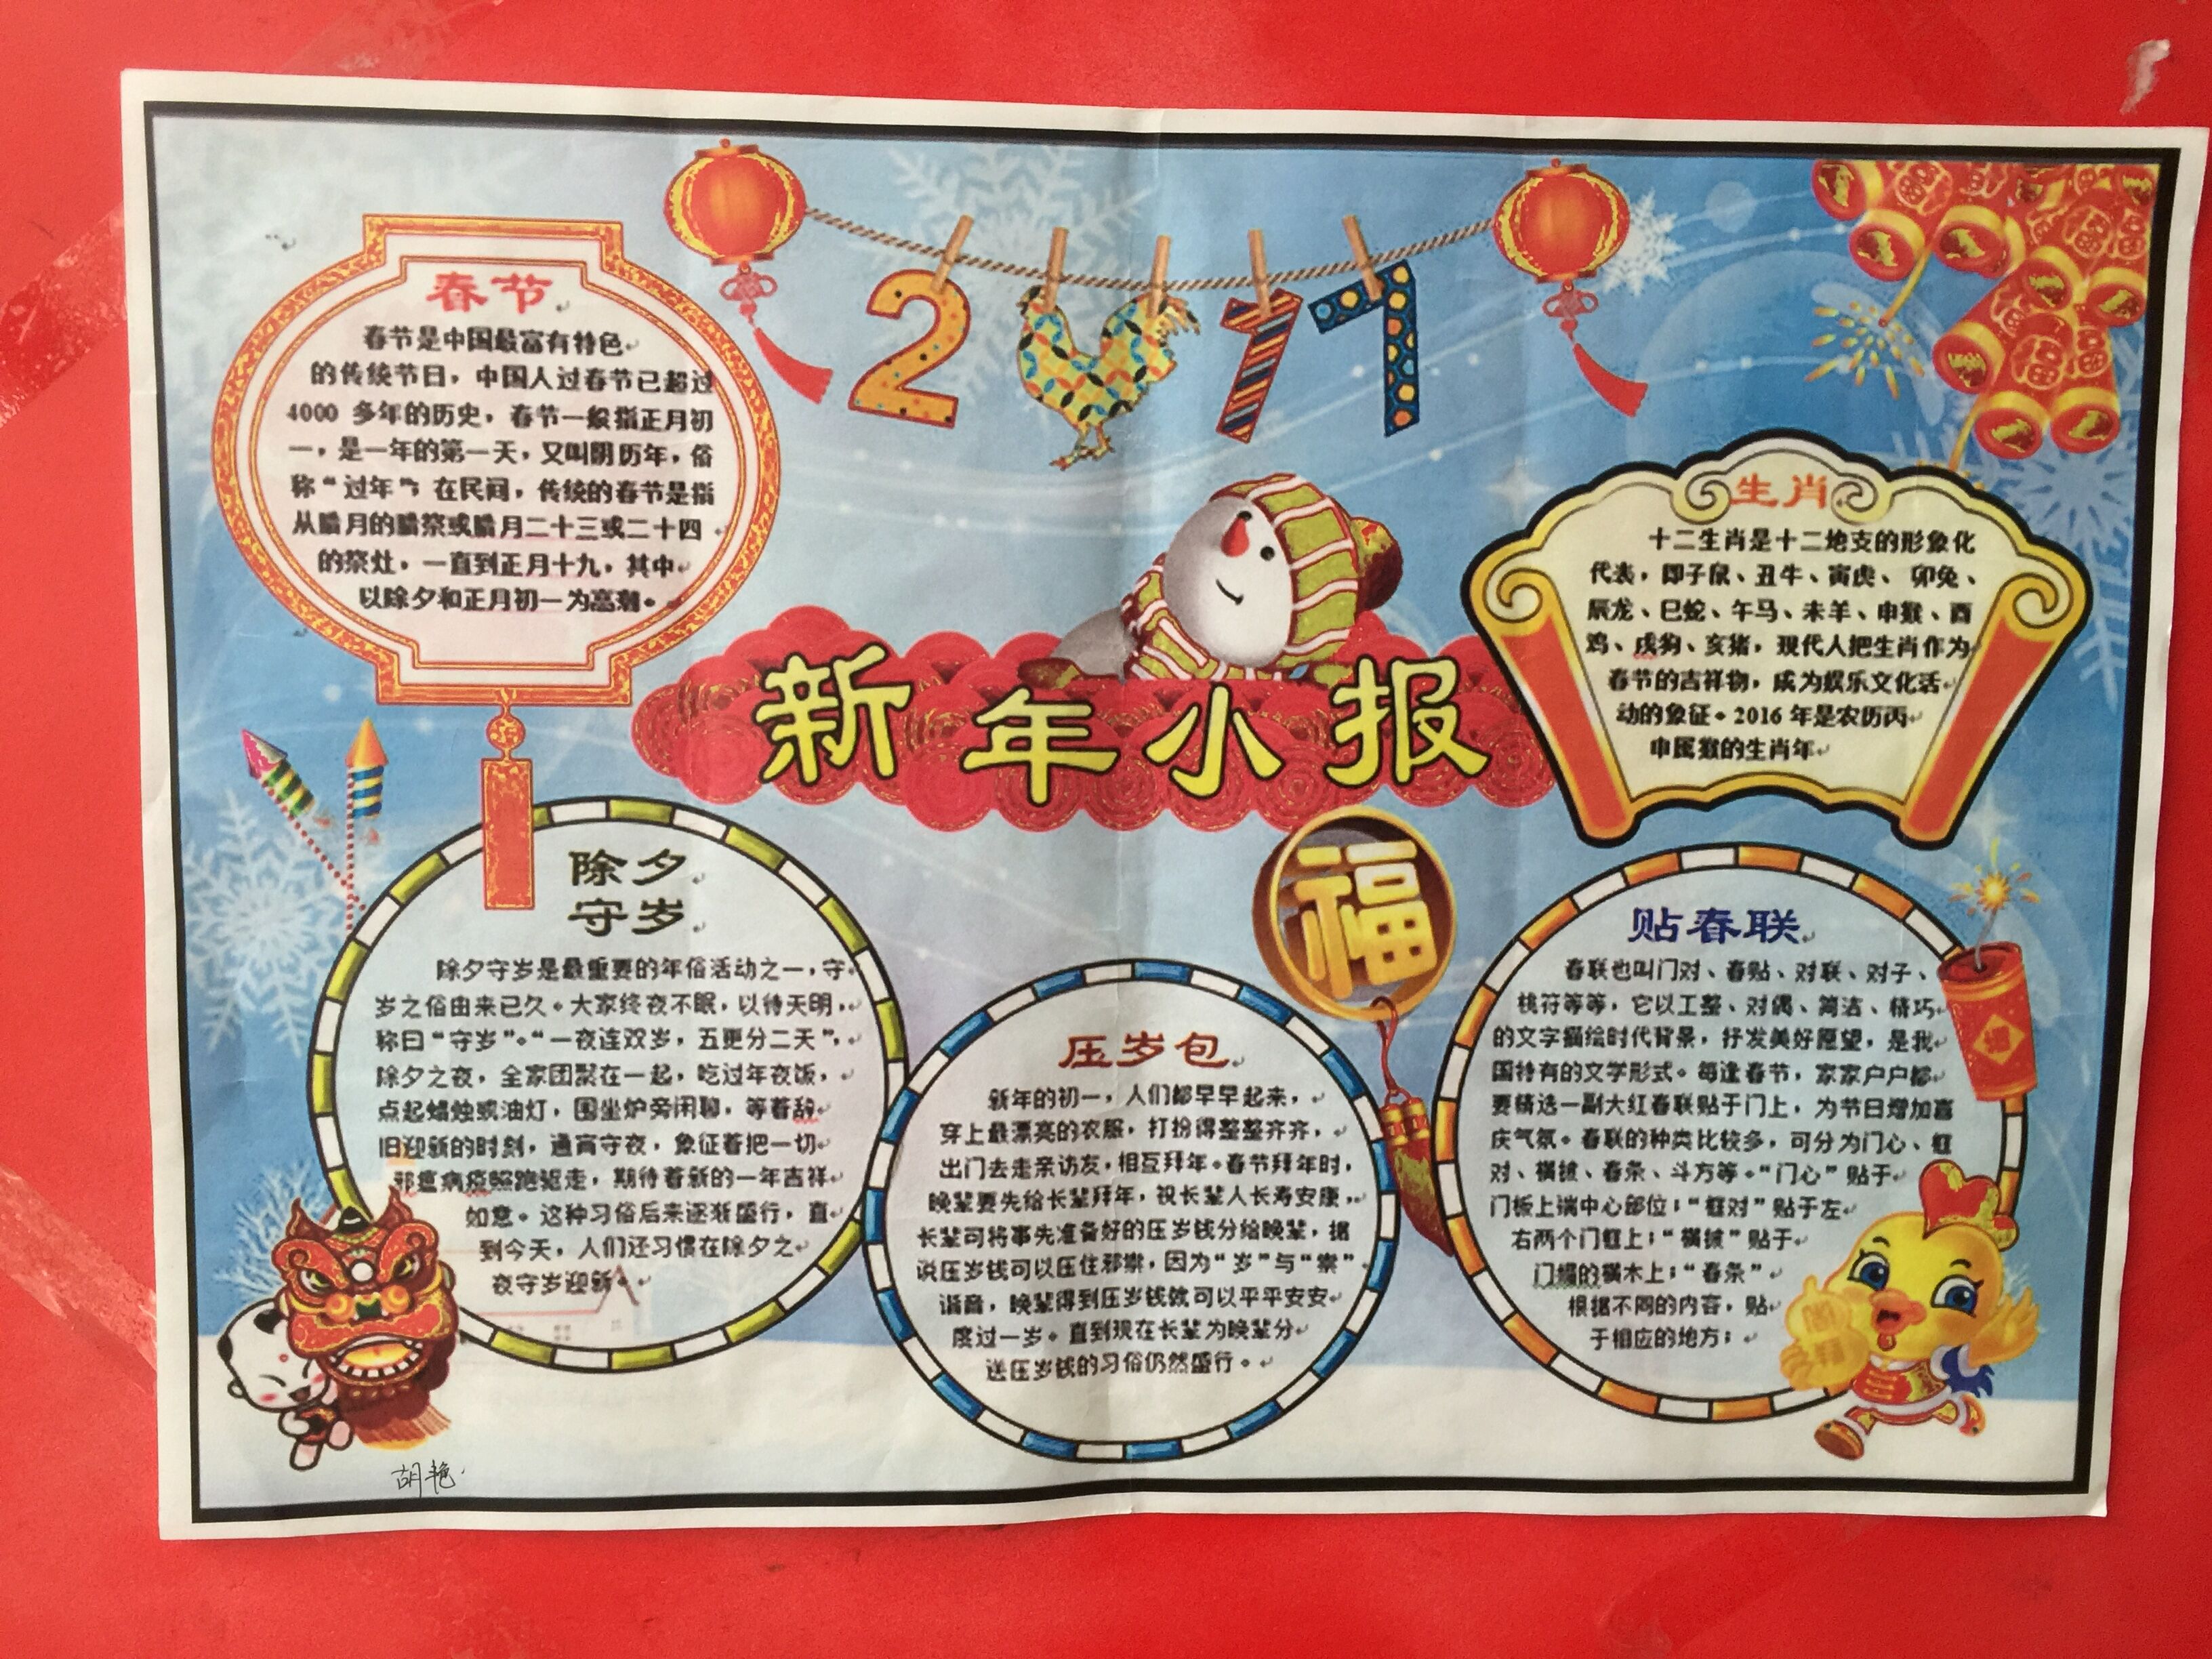 2 17
春节
春节是中国最富有特色
的传统节日，中国人过春节已超过
4000 多年的历史，春节一般指正月初
一，是一年的第一天，又叫阴历年，俗
称“过年”；在民间，传统的春节是指
从腊月的腊祭或腊月二十三或二十四
的祭灶，一直到正月十九，其中
以除夕和正月初一为高潮。
新年小报
生肖
十二生肖是十二地支的形象化
代表，即子鼠、丑牛、寅虎、卯兔、
辰龙、巳蛇、午马、未羊、申猴、酉
鸡、戌狗、亥猪，现代人把生肖作为
春节的吉祥物，成为娱乐文化活
动的象征。2016 年是农历丙
申属猴的生肖年
除夕
守岁
除夕守岁是最重要的年俗活动之一，守
岁之俗由来已久。大家终夜不眠，以待天明，
称曰“守岁”。“一夜连双岁，五更分二天”，
除夕之夜，全家团聚在一起，吃过年夜饭，
点起蜡烛或油灯，围坐炉旁闲聊，等着辞
旧迎新的时刻，通宵守夜，象征着把一切
邪瘟病疫照跑驱走，期待着新的一年吉祥
如意。这种习俗后来逐渐盛行，直
到今天，人们还习惯在除夕之
夜守岁迎新。
福
压岁包
新年的初一，人们都早早起来，
穿上最漂亮的衣服，打扮得整整齐齐，
出门去走亲访友，相互拜年。春节拜年时，
晚辈要先给长辈拜年，祝长辈人长寿安康，
长辈可将事先准备好的压岁钱分给晚辈，据
说压岁钱可以压住邪祟，因为“岁”与“祟”
谐音，晚辈得到压岁钱就可以平平安安
度过一岁。直到现在长辈为晚辈分
送压岁钱的习俗仍然盛行。
贴春联
春联也叫门对、春贴、对联、对子、
桃符等等，它以工整、对偶、简洁、精巧
的文字描绘时代背景，抒发美好愿望，是我
国特有的文学形式。每逢春节，家家户户都
要精选一副大红春联贴于门上，为节日增加喜
庆气氛。春联的种类比较多，可分为门心、框
对、横披、春条、斗方等。“门心”贴于
门板上端中心部位；“框对”贴于左
右两个门框上；“横披”贴于
门楣的横木上；“春条”
根据不同的内容，贴
于相应的地方；
胡艳